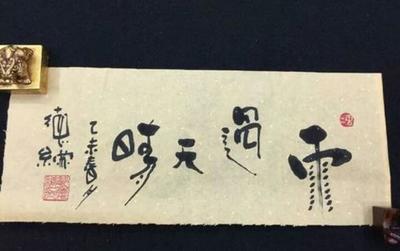 雨過天晴
乙未春月